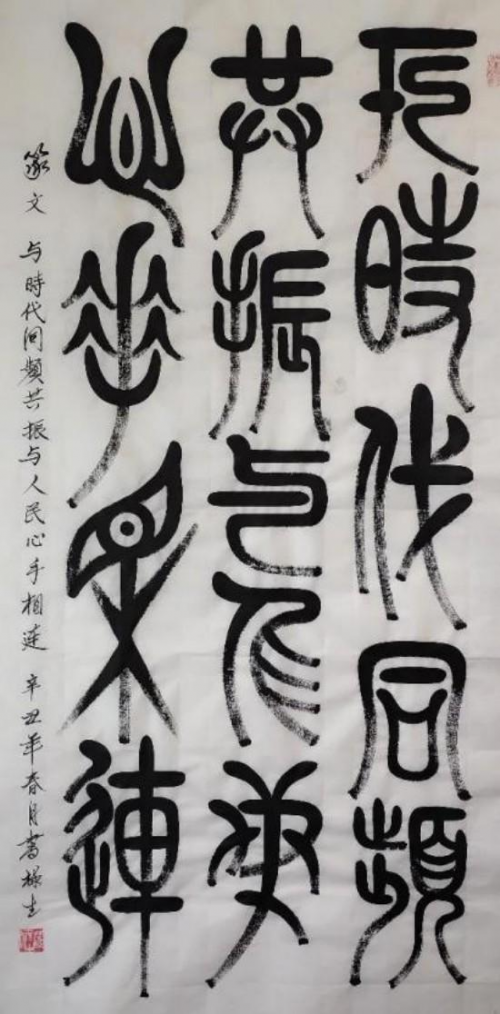 与時代同頻
共振与人民
心手相連
篆文 与時代同頻共振与人民心手相連 辛丑年春月書